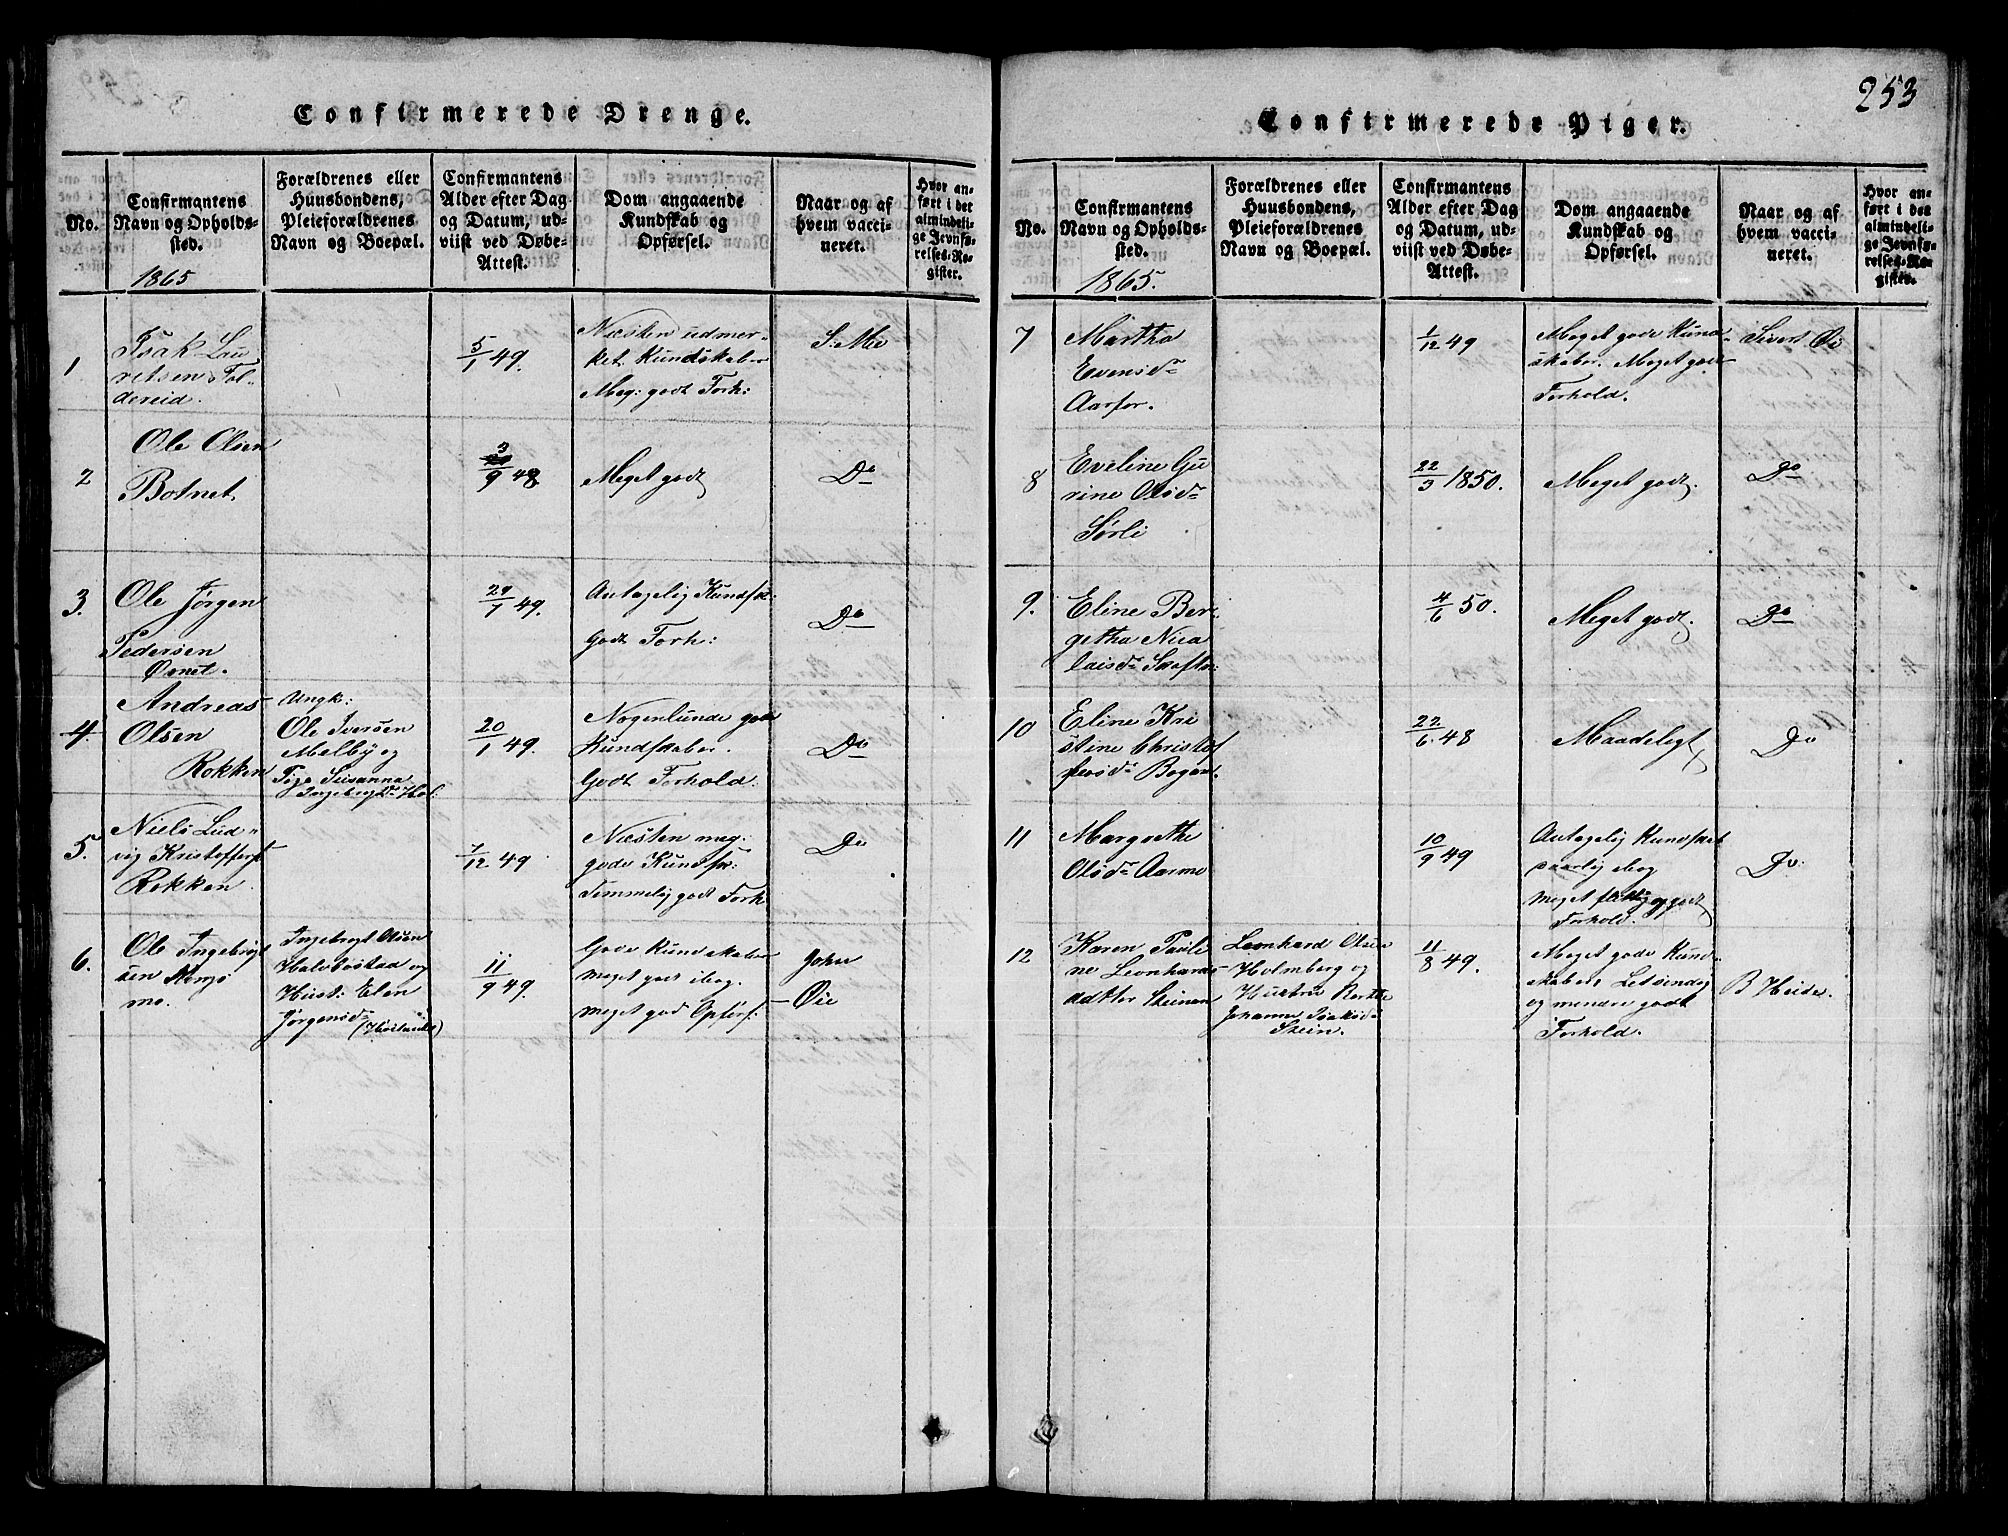 Confirmerede Drenge.
No.
Confirmantens
Navn og Opholds-
sted.
1865
Forældrenes eller
Huusbondens,
Pleieforældrenes
Navn og Boepæl.
Confirmantens
Alder efter Dag
og Datum, ud-
viist ved Døbe-
Attest.
Dom angaaende
Kundskab og
Opførsel.
Naar og af
hvem vacci-
neret.
Hvor an-
ført i det
almindeli-
ge Jevnfø-
relses-Re-
gister.
1
Isak Lau
ritsen Fol-
dereid.
5/1 49.
Næsten udmer-
ket Kundskaber
Meg: godt Forh:
2
Ole Olsen
Botnet.
9 48
Meget godt
Do
3.
Ole Jørgen
Pedersen
29/1 49.
Antagelig Kundsk:
Godt Forh:
Do
4
Andreas
Olsen
Rokken
Ungk:
Ole Iversen
Melby og
Pige Susanna
20/1 49.
Nogenlunde gode
Kundskaber.
Godt Forhold.
Do
5.
Niels Lud-
vig Kristoffers:
Rokken
7/12 49
Næsten meg:
gode Kundsk:
Temmelig godt Forh
Do
6.
Ole Ingebrigt
sen
mo.
Ingebrigt Olsen
og
Hust: Elen
Jørgensdr
11/9 49.
Gode Kundskaber
meget god ibog.
meget god Opførs:
John
Øie
253
Confirmerede Piger.
No.
Confirmantens
Navn og Opholds-
sted.
1865.
Forældrenes eller
Huusbondens,
Pleieforældrenes
Navn og Boepæl.
Confirmantens
Alder efter Dag
og Datum, ud-
viist ved Døbe-
Attest.
Dom angaaende
Kundskab og
Opførsel.
Naar og af
hvem vacci-
neret.
Hvor an-
ført i det
almindeli-
ge Jevnfø-
relses-Re-
gister.
7
Martha
Evensdr
Aarfor.
1/12 49
Meget gode Kund-
skaber. Meget godt
Forhold.
Sivert Øie
8
Eveline Gu
rine Olsdr
Sørli
22/3 1850.
Meget godt.
Do
9.
Eline Ber-
getha Nico
laisdr
4/6 50.
Meget godt.
Do
10
Eline Kri
stine Christof
fersdr
22/6. 48
Maadeligt
Do
11
Margrethe
Olsdr Aarmo
10/9 49
Antagelig Kundskab
daarlig ibog
meget flittig og godt
Forhold.
Do.
12
Karen Pauli
ne Leonhards
datter Steinen
Leonhard Olsen
Holmberg og
Hustru
Johanna Isaksdr
Stein.
11/8 49.
Meget gode Kund-
skaber. Letsindig
og mindre godt
Forhold.
B Heide.